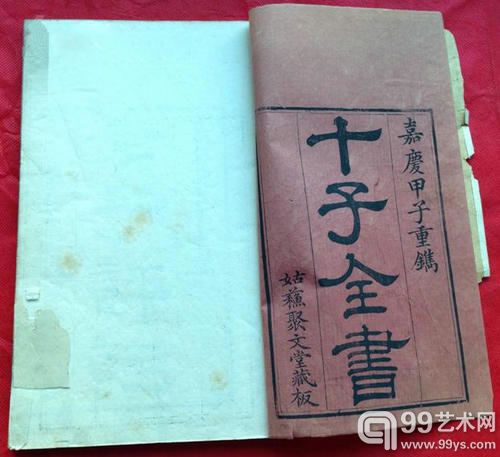 嘉慶甲子重鐫
十子全書
姑蘇聚文堂藏板
99艺术网
www.99ys.com